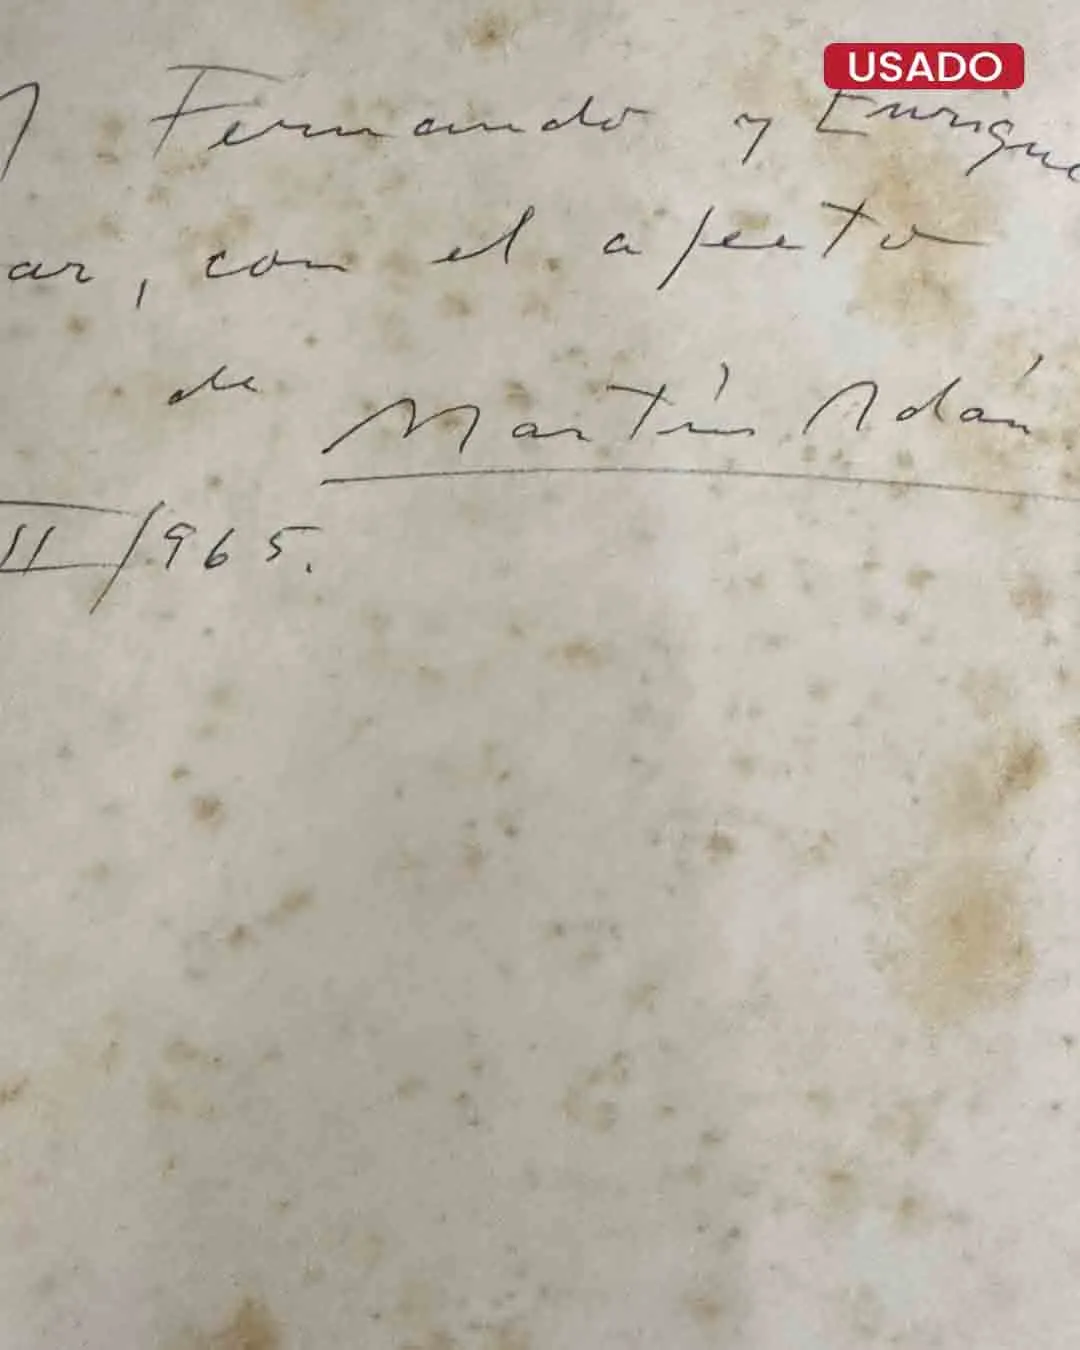 USADO
A Fernando y Enrique
ar, con el afecto
de Martín Adán
II/965.